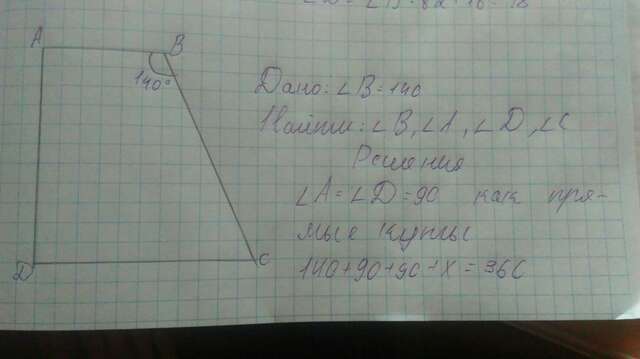 A
B
140°
Дано: ∠B=140
Найти: ∠B, ∠A, ∠D, ∠C
Решения
∠A=∠D=90 как пря-
мые куглы
140+90+90+X=360
D
C